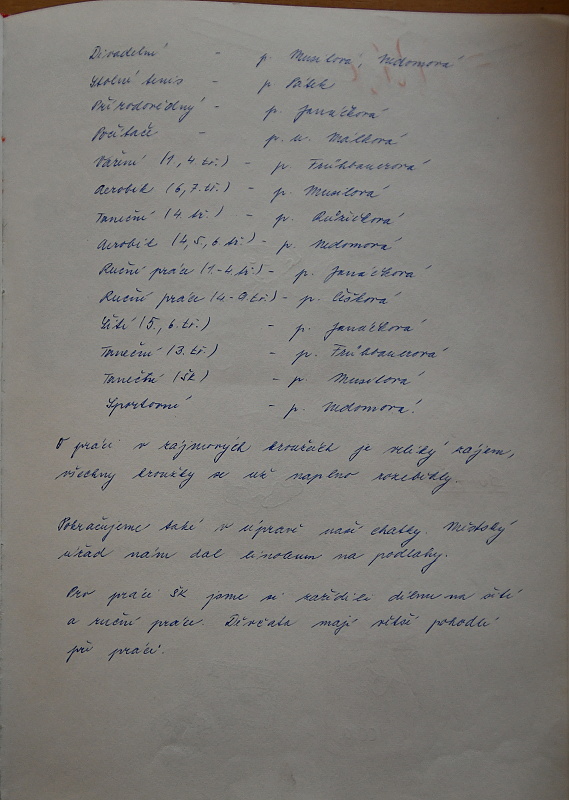 Divadelní - p. Musilová, Nedomová
Stolní tenis - p. Pátek
Přírodovědný - p. Janáčková
Počítače - p. u. Málková
Vaření (1., 4. tř.) - p. Frühbauerová
Aerobik (6., 7. tř.) - p. Musilová
Taneční (4. tř.) - p. Růžičková
Aerobik (4., 5., 6. tř.) - p. Nedomová
Ruční práce (1.-4. tř.) - p. Janáčková
Ruční práce (4.-9. tř.) - p. Číšková
Šití (5., 6. tř.) - p. Janáčková
Taneční (3. tř.) - p. Frühbauerová
Taneční (ŠK) - p. Musilová
Sportovní - p. Nedomová.
O práci v zájmových kroužcích je veliký zájem,
všechny kroužky se už naplno rozeběhly.
Pokračujeme také v úpravě naší chatky. Městský
úřad nám dal linoleum na podlahy.
Pro práci ŠK jsme si zařídili dílnu na šití
a ruční práce. Děvčata mají větší pohodlí
při práci.